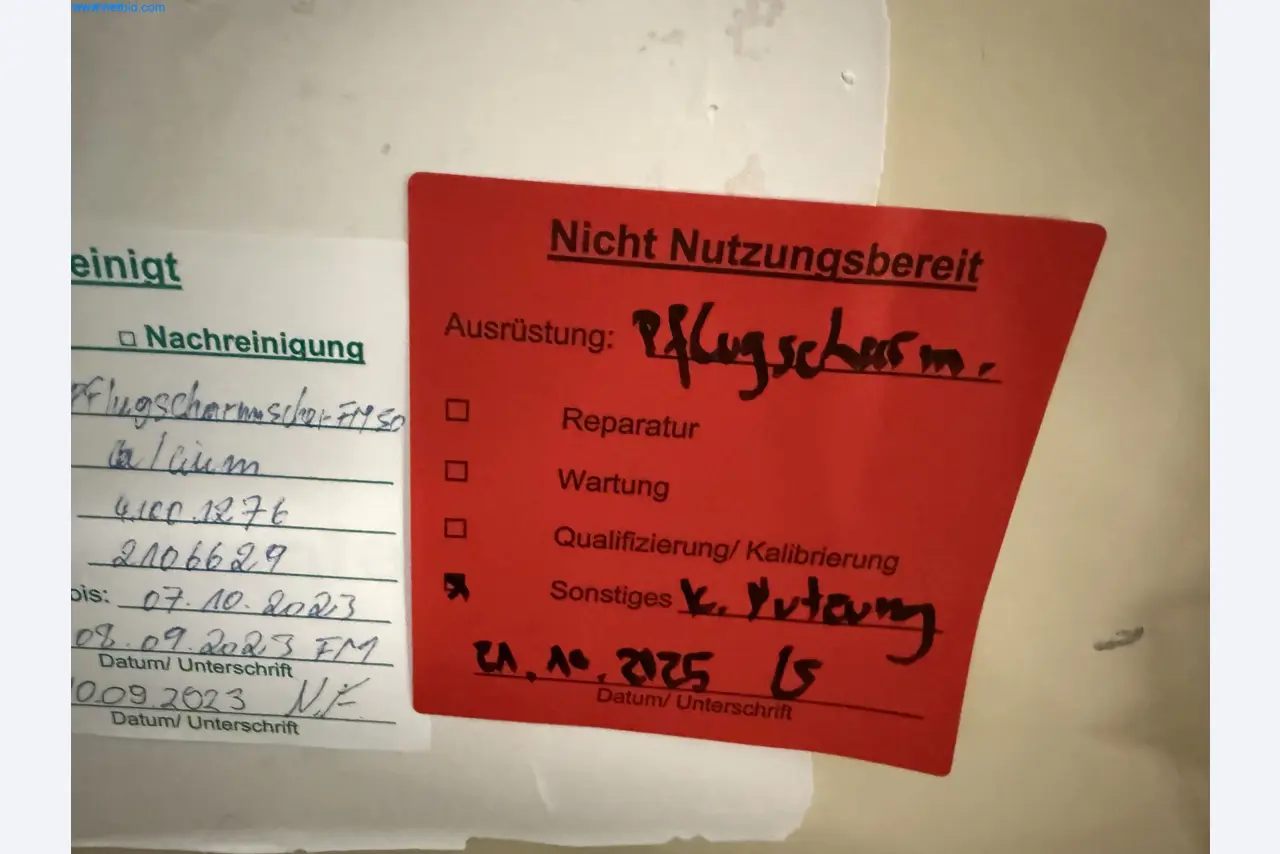 einigt
Nachreinigung
Pflugscharmischer FM50
Calcium
4.100.1276
2106629
bis: 07.10.2023
08.09.2023 FM
Datum/ Unterschrift
10.09.2023 N.F.
Datum/ Unterschrift
Nicht Nutzungsbereit
Ausrüstung: Pflugscharm.
Reparatur
Wartung
Qualifizierung/ Kalibrierung
Sonstiges K. Nutzung
21.10.2025 LS
Datum/ Unterschrift